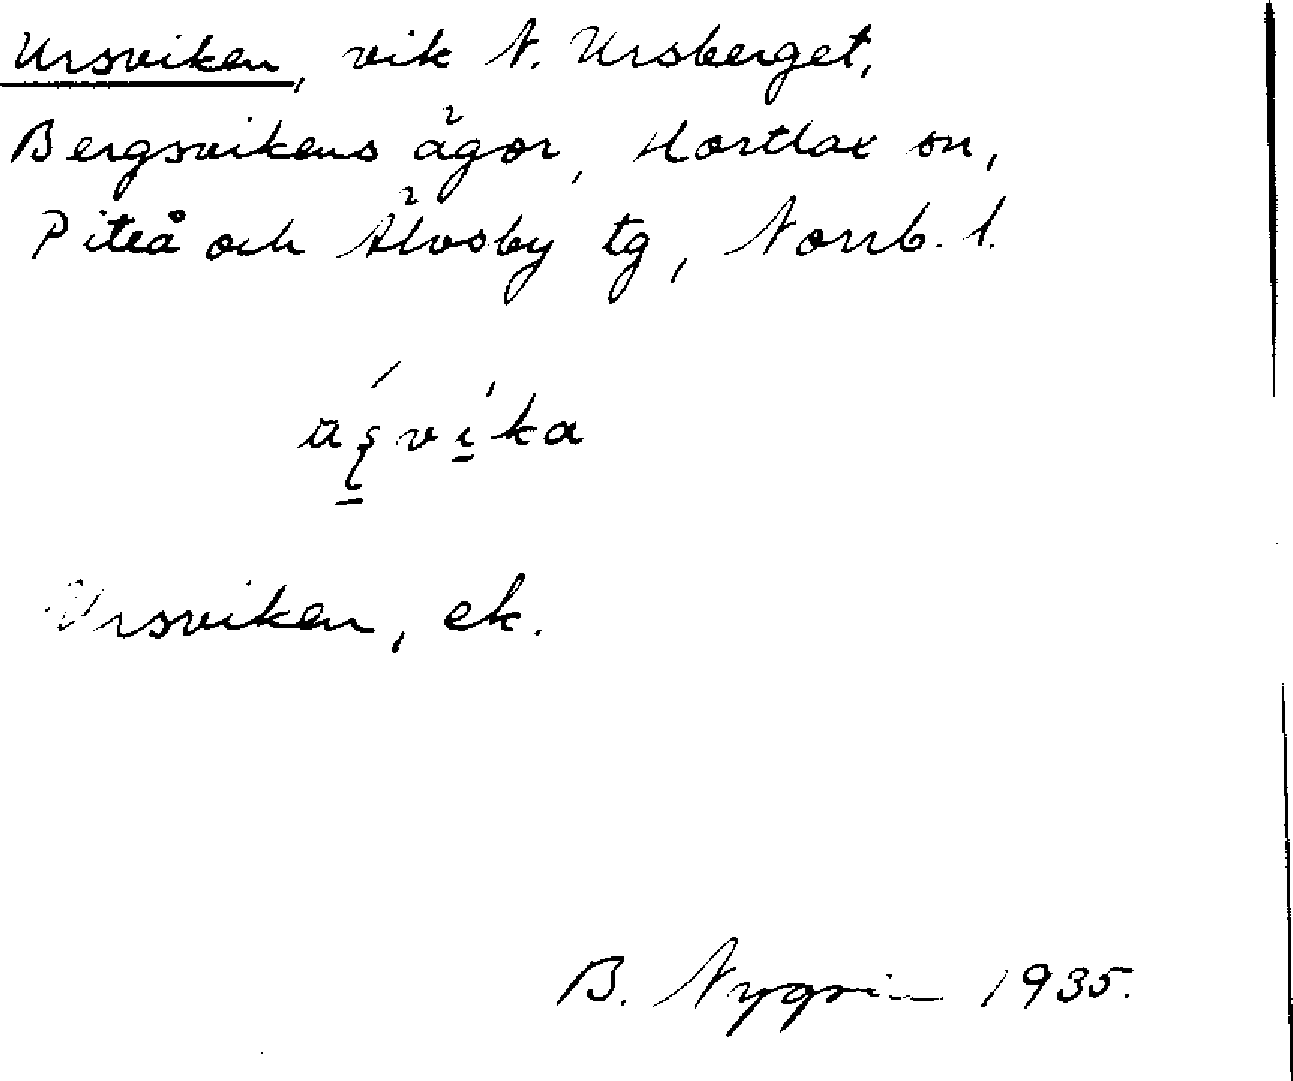 Ursviken, vik N. Ursberget,
Bergsvikens ägor, Hortlax sn,
Piteå och Älvsby tg, Norrb. l.
Ursviken, ek.
B. Nygren 1935.